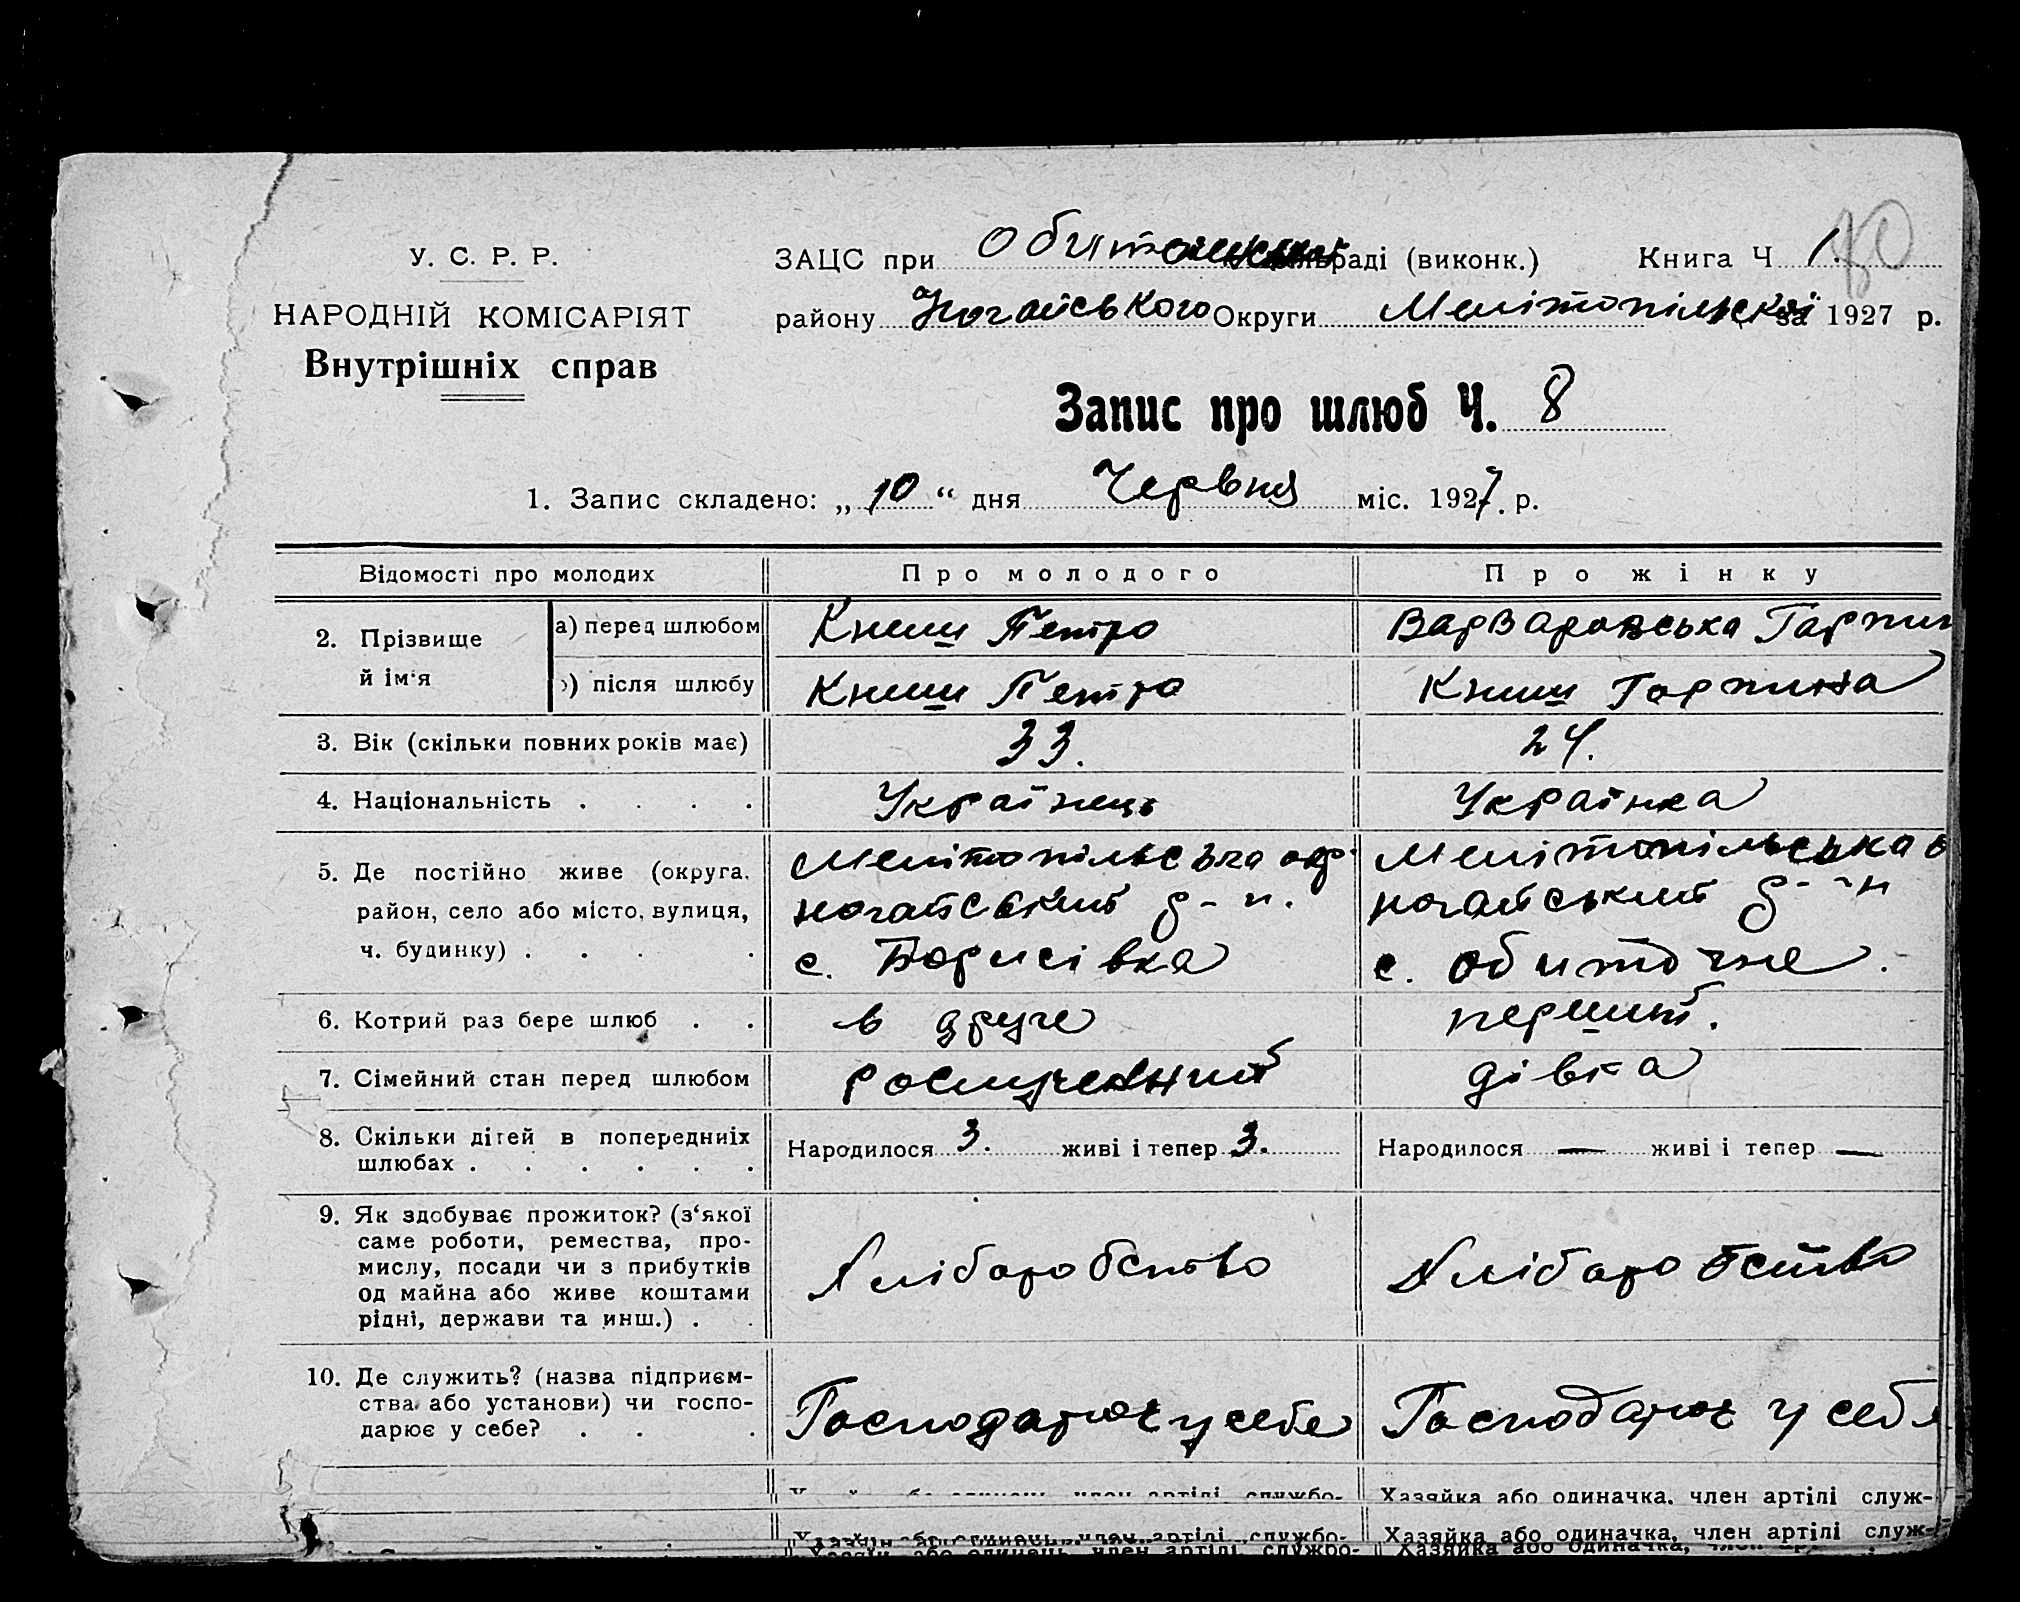 У. С. Р. Р.
НАРОДНІЙ КОМІСАРІЯТ
Внутрішніх справ
ЗАЦС при Обиточ раді (виконк.) Книга Ч 1. 80
району Ногайського Округи Мелітопільскої за 1927 р.
Запис про шлюб Ч. 8
1. Запис складено: „ 10 “ дня Червня міс. 1927. р.
Відомості про молодих Про молодого Про жінку
2. Прізвище й ім‘я
а) перед шлюбом Книш Петро Варваровська Гарпин
б) після шлюбу Книш Петро Книш Гарпина
3. Вік (скільки повних років має) 33. 24.
4. Національність . . . . Українець Українка
5. Де постійно живе (округа, Мелітопільська окр. Мелітопільська о
район, село або місто, вулиця, ногайський р-н. ногайський р-н
ч. будинку) . . . . с. Борисівка с. Обиточне.
6. Котрий раз бере шлюб . . в друге перший.
7. Сімейний стан перед шлюбом дівка
8. Скільки дітей в попередниіх
шлюбах . . . . . . Народилося 3. живі і тепер 3. Народилося — живі і тепер —
9. Як здобуває прожиток? (з‘якої
саме роботи, ремества, про-
мислу, посади чи з прибутків
од майна або живе коштами
рідні, держави та инш.) . . Хліборобство Хліборобство
10. Де служить? (назва підприєм-
ства або установи) чи госпо-
дарює у себе? . . . Господарює у себе Господарює у себе
Хазяйка або одиначка, член артілі служ-
Хазяїн або одинець, член артілі, службо- Хазяйка або одиначка, член артілі служ-
Хазяїн або одинець, член артілі, службо- Хазяйка або одиначка,